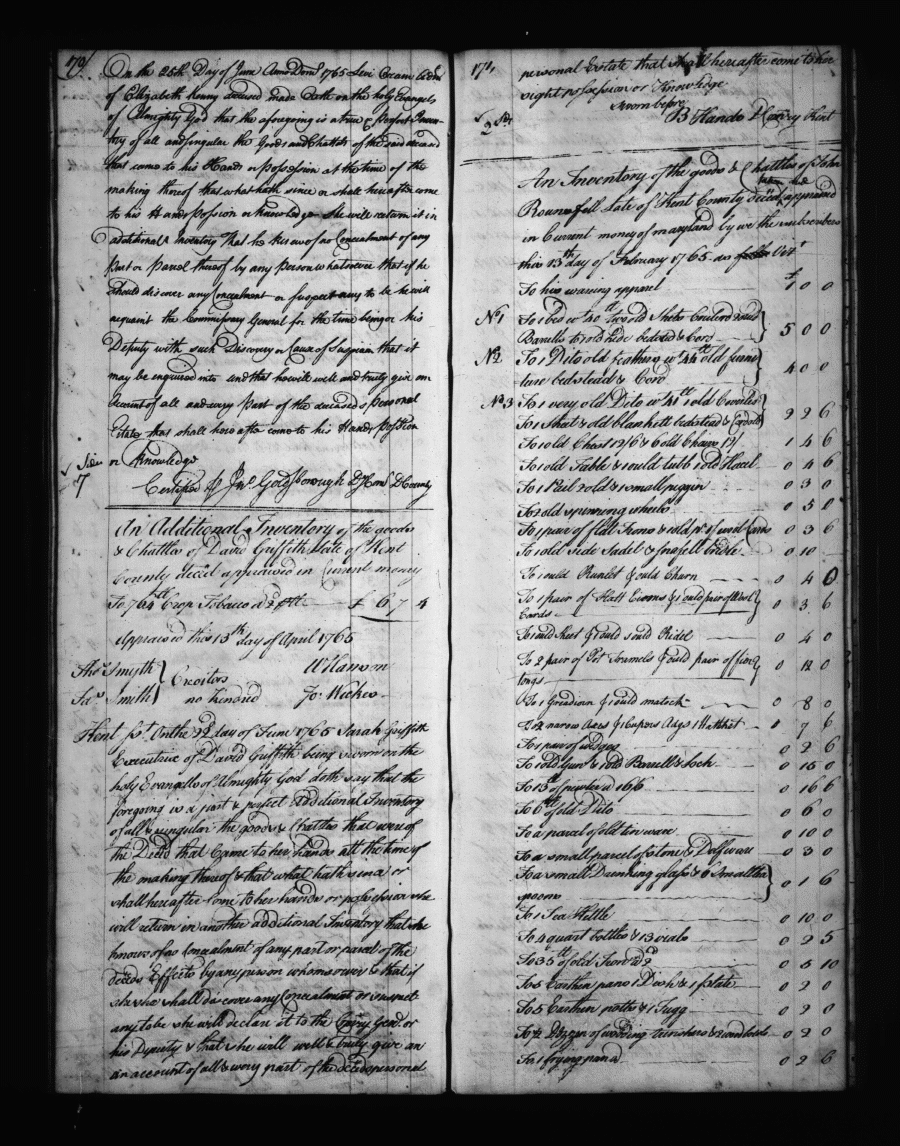 170/
On the 25th Day of June Anno Dom 1765 Levi
of Elizabeth deceased made Oath on the holy Evangels
of Almighty God that the aforegoing is a true & Perfect Inven-
tory of all and singular the Goods and Chattels of the said deceased
that came to his Hands or possession at the time of the
making thereof that what hath since or shall hereafter come
to his Hands Possion or knowledge She will return it in
additional Inventory That he knows of no Concealment of any
Part or Parcel thereof by any person whatsoever that if he
Should discover any Concealment or suspect any to be he will
acquaint the Commissary General for the time being or his
Deputy with such Discovery or Cause of Suspician that it
may be enquired into and that he will well and truly give an
Account of all and every Part of the deceased's Personal
Estate that shall here after come to his Hands Possion
or Knowledge
Sides
7
Certified Jno Goldsborough Dy Com D County
An Additional Inventory of the goods
& Chattles of David Griffith late of Kent
County deced appraised in Current money
To 764 Crop Tobacco £ 6 7 4
Appraised this 13th day of April 1765
Thos Smyth
Jas Smith
Creditors
no kindred
W Hanson
Jo: Wickes
Kent sst. On the 22 day of June 1765 Sarah Griffith
Executrix of David Griffith being sworn on the
holy Evangells of Almighty God doth say that the
foregoing is a just & perfect additional Inventory
of all & singular the goods & Chattles that were of
the Deced that Came to her hands att the time of
the making thereof & that what hath since or
shall hereafter come to her hands or possession she
will return in another additional Inventory that she
knows of no Concealment of any part or parcel of the
deceds Effects by any person whomsoever & that if
she shall discover any Concealment or suspect
any to be she will declare it to the Comry Genl. or
his Deputy & that she will well & truly give an
an account of all & every part of the deceds personal
171,
personal Estate that shall hereafter come to her
right possession or Knowledge
Sworn before
2 Sds
B Hands D Comry Kent
An Inventory of the goods & Chattles of John
Rounsefell late of Kent County deced appraised
in Current money of maryland by we the subscribers
this 13th day of February 1765 as Vizt
To his waring apparel £ 1 0 0
No 1 To 1 bed wt 40 lb two old Sheets
bedsted & Cord 5 0 0
No 2 To 1 Dito old feathers wt 44 lb old furni
ture bedstead & Cord 4 0 0
No 3 To 1 very old Dito wt 41 lb 1 old Coverlid
To 1 Sheat & old blankett bedstead & Cord 2 2 6
To 1 old Chest 12/6 & 6 old Chairs 12/ 1 4 6
To 1 old Table & 1 ould tubb 1 old 0 4 6
To 1 Pail 2 old & 1 small piggin 0 3 0
To 2 old spinning wheels 0 5 0
To 1 pair of flatt Irons & 1 old pr of wool Cards 0 3 6
To 1 old Side Sadel & Bridle 0 10
To 1 ould Runlet & ould Charn 0 4 0
To 1 pair of Flatt Eirons & 1 ould pair of Wool
Cards 0 3 6
To 1 ould 1 ould Ridel 0 4 0
To 2 pair of Pot Tramels & ould pair of fire
tongs 0 12 0
To 1 Gridiron & 1 ould matock 0 8 0
To 2 narow Axes & 1 Cupers Adge 1 Hatchet 0 7 6
To 1 pair of wedges 0 2 6
To 1 old Gun & 1 old Barrell & lock 0 15 0
To 13 lb of pewter a 0 16 6
To 6 lb of old Dito 0 6 0
To a parcel of old tin ware 0 10 0
To a small parcel of stone & Delf ware 0 3 0
To a small Drinking glass & 6 Small tea
spoons 0 1 6
To 1 Tea Kettle 0 10 0
To 4 quart bottles & 13 vials 0 2 5
To 35 lb of old Iron a 2 0 5 10
To 5 Earthen pans 1 Dish & 1 plate 0 2 0
To 5 Earthen potts & 1 Jugg 0 2 0
To 1/2 Dozzen of wooding trenchers & 0 2 0
To 1 frying pan a 0 2 6